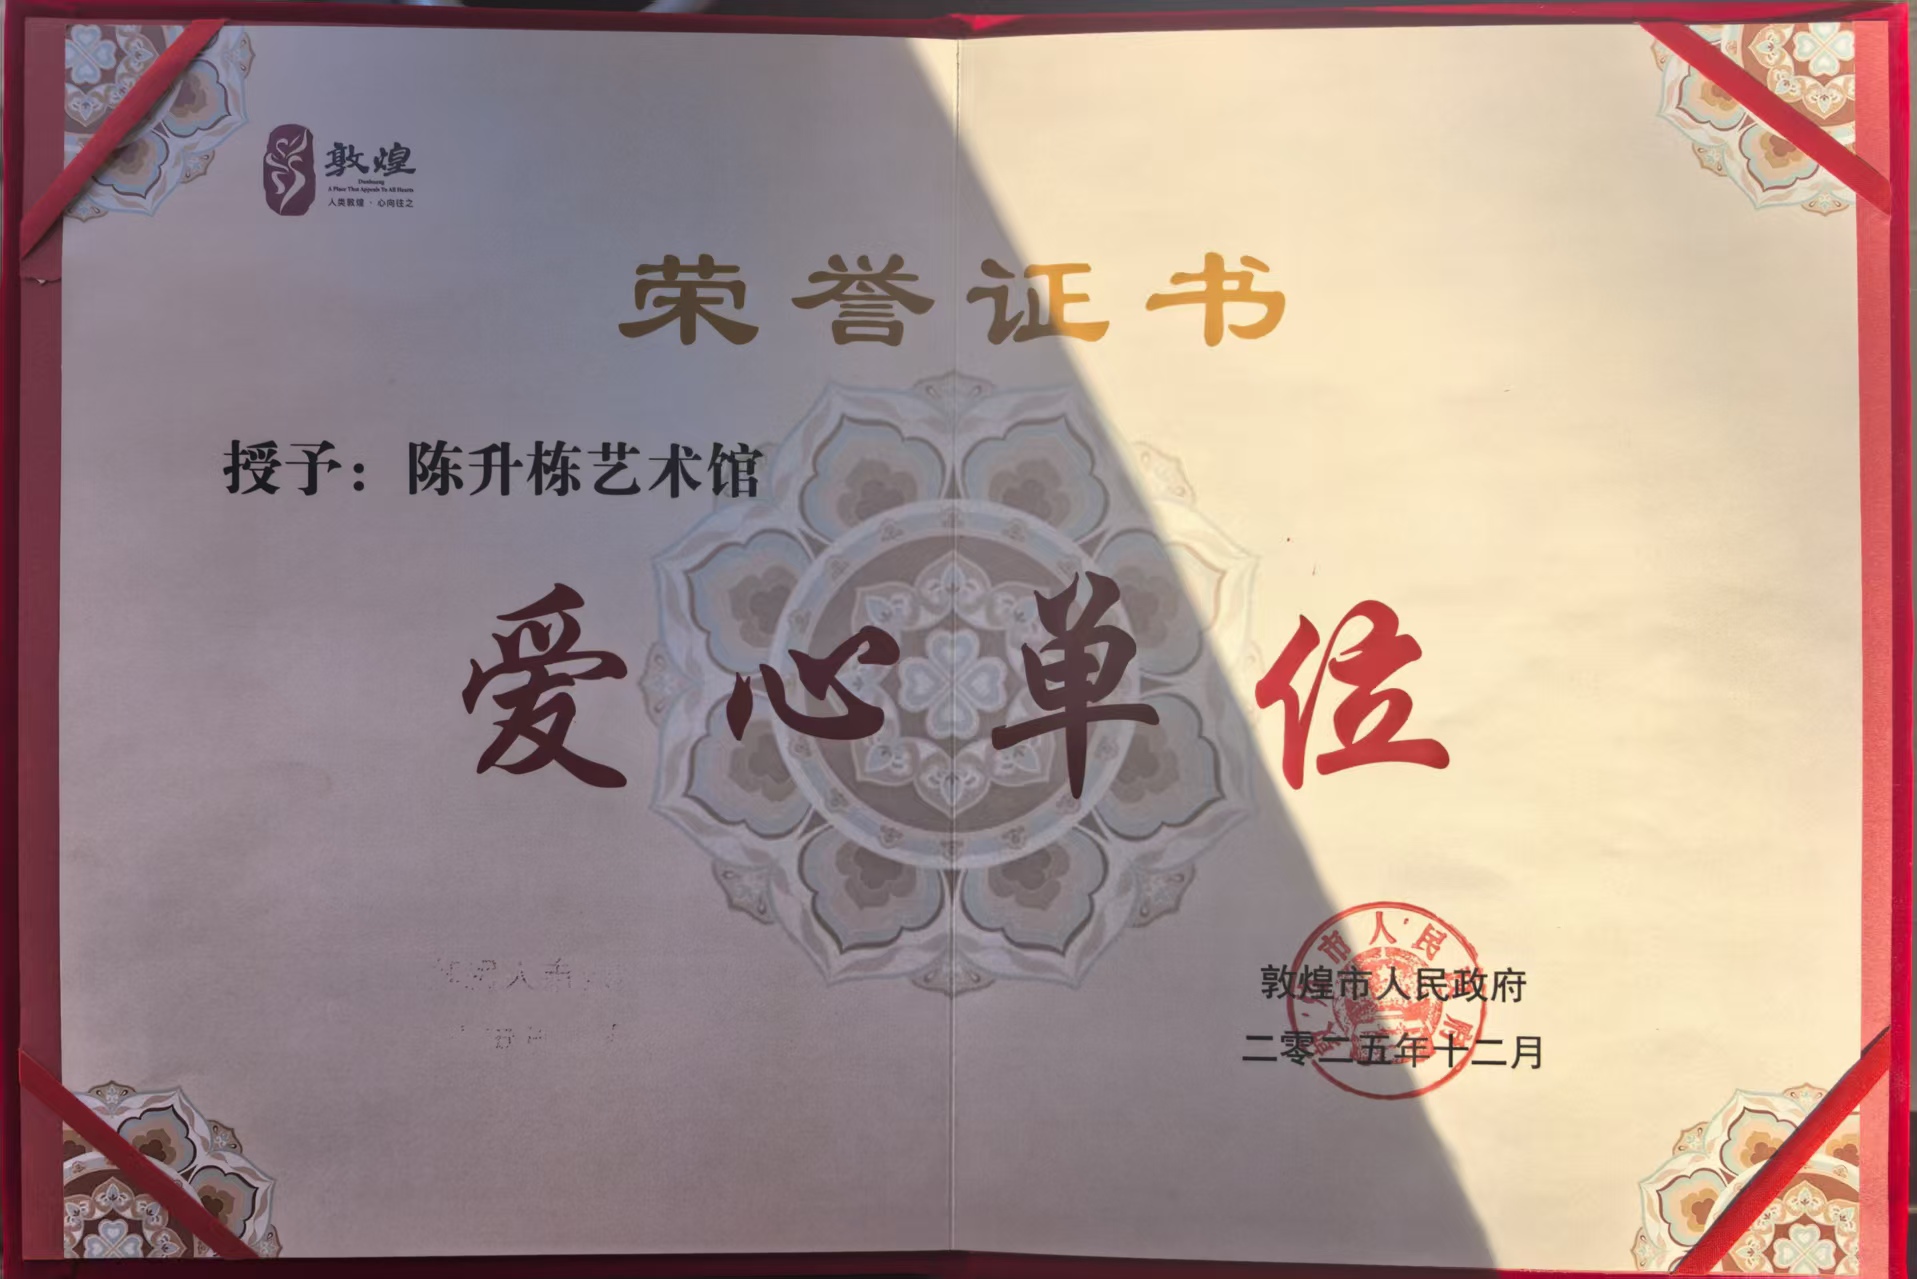 敦煌
Dunhuang
A Place That Appeals To All Hearts
人类敦煌 · 心向往之
荣誉证书
授予：陈升栋艺术馆
爱心单位
敦煌市人民政府
二零二五年十二月